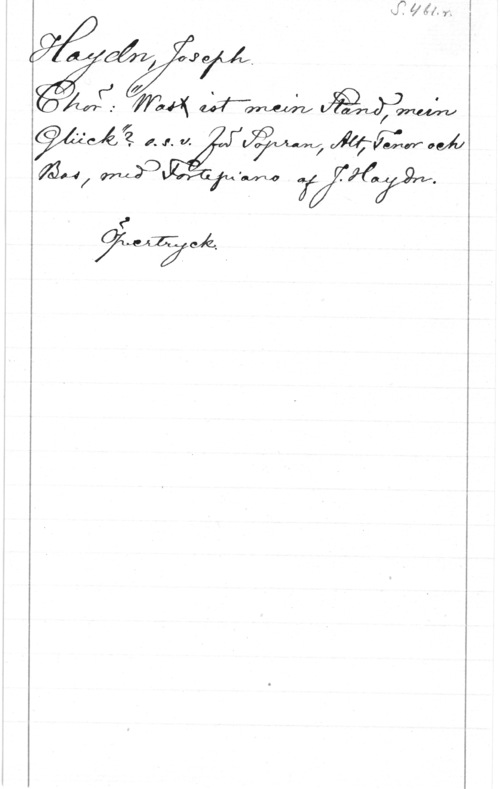 S. 461. r.
Haydn, Joseph.
Chor: "Was ist mein Stand, mein
Glück"? o.s.v. för Sopran, Alt, Tenor och
Bas, med Fortepiano af J. Haydn.
Öfvertryck.